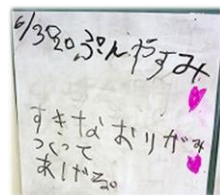 6/3 20ぷんやすみ
すきなおりがみ
つくって
あげる。